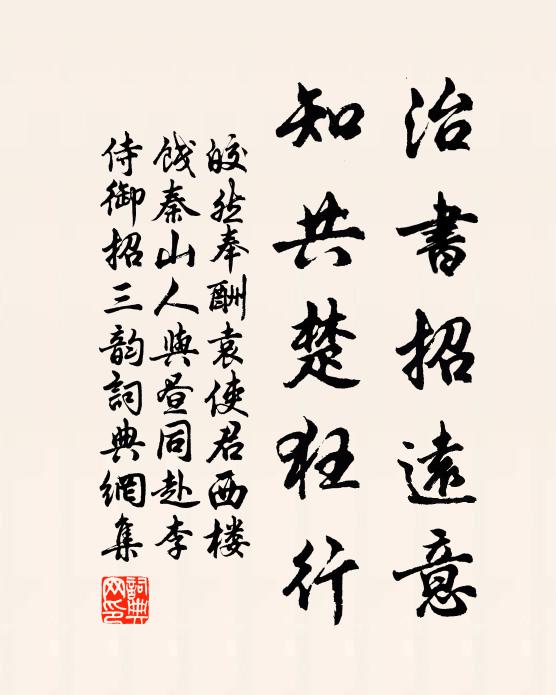 治書招遠意
知共楚狂行
皎然奉酬袁使君西楼
饯秦山人與昼同赴李
侍御招三韵詞典網集
詞典网印